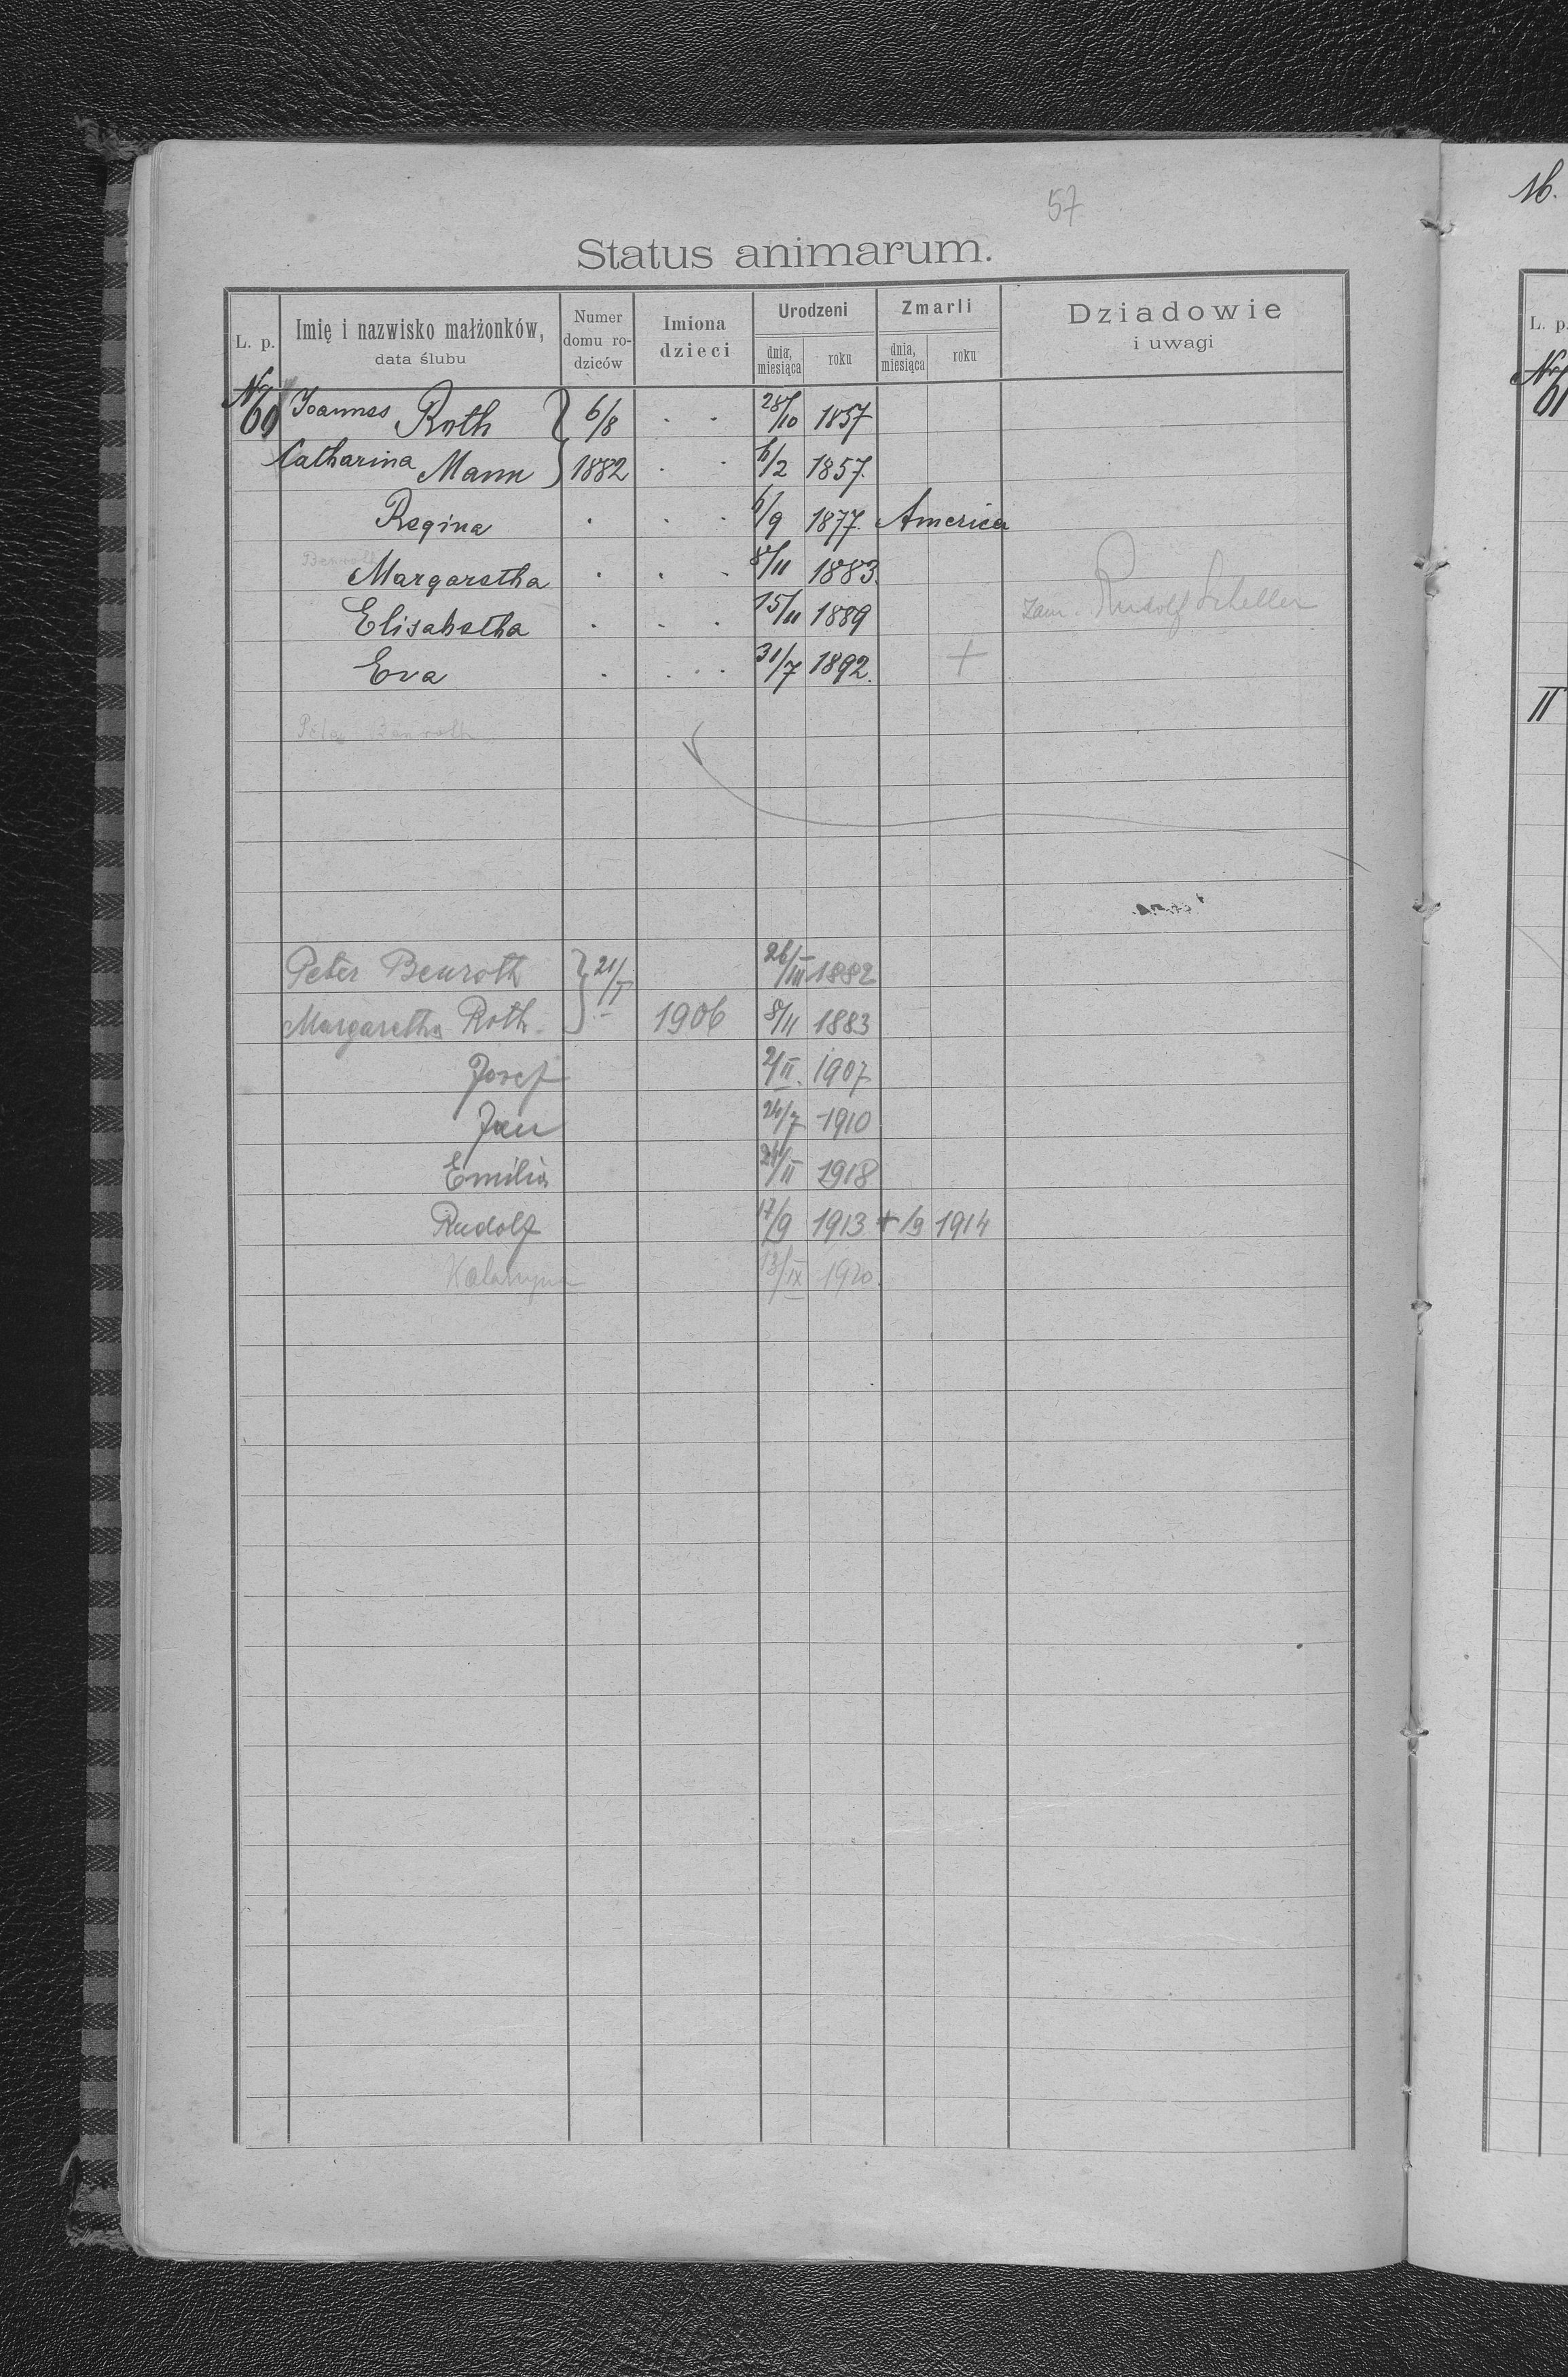 57
Status animarum.
L. p. Imię i nazwisko małżonków, data ślubu Numer domu rodziców Imiona dzieci Urodzeni dnia, miesiąca roku Zmarli dnia, miesiąca roku Dziadowie i uwagi
No 60 Joannes Roth } 6/8 . . 28/10 1857
Catharina Mann } 1882 . . 6/2 1857.
Regina . . . 6/9 1877. America
Margaretha . . . 8/11 1883.
Elisabetha . . . 15/11 1889 zam. Rudolf Scheller
Eva . . . 31/7 1892. +
Peter Benroth
Peter Benroth } 21/I 26/III 1882
Margaretha Roth } 1906 8/11 1883
Josef 2/II. 1907
Jan 24/7 1910
Emilia /II 1918
Rudolf 17/9 1913 + /9 1914
Katarzyna 13/IX 1920.
16.
L. p.
No 61
II